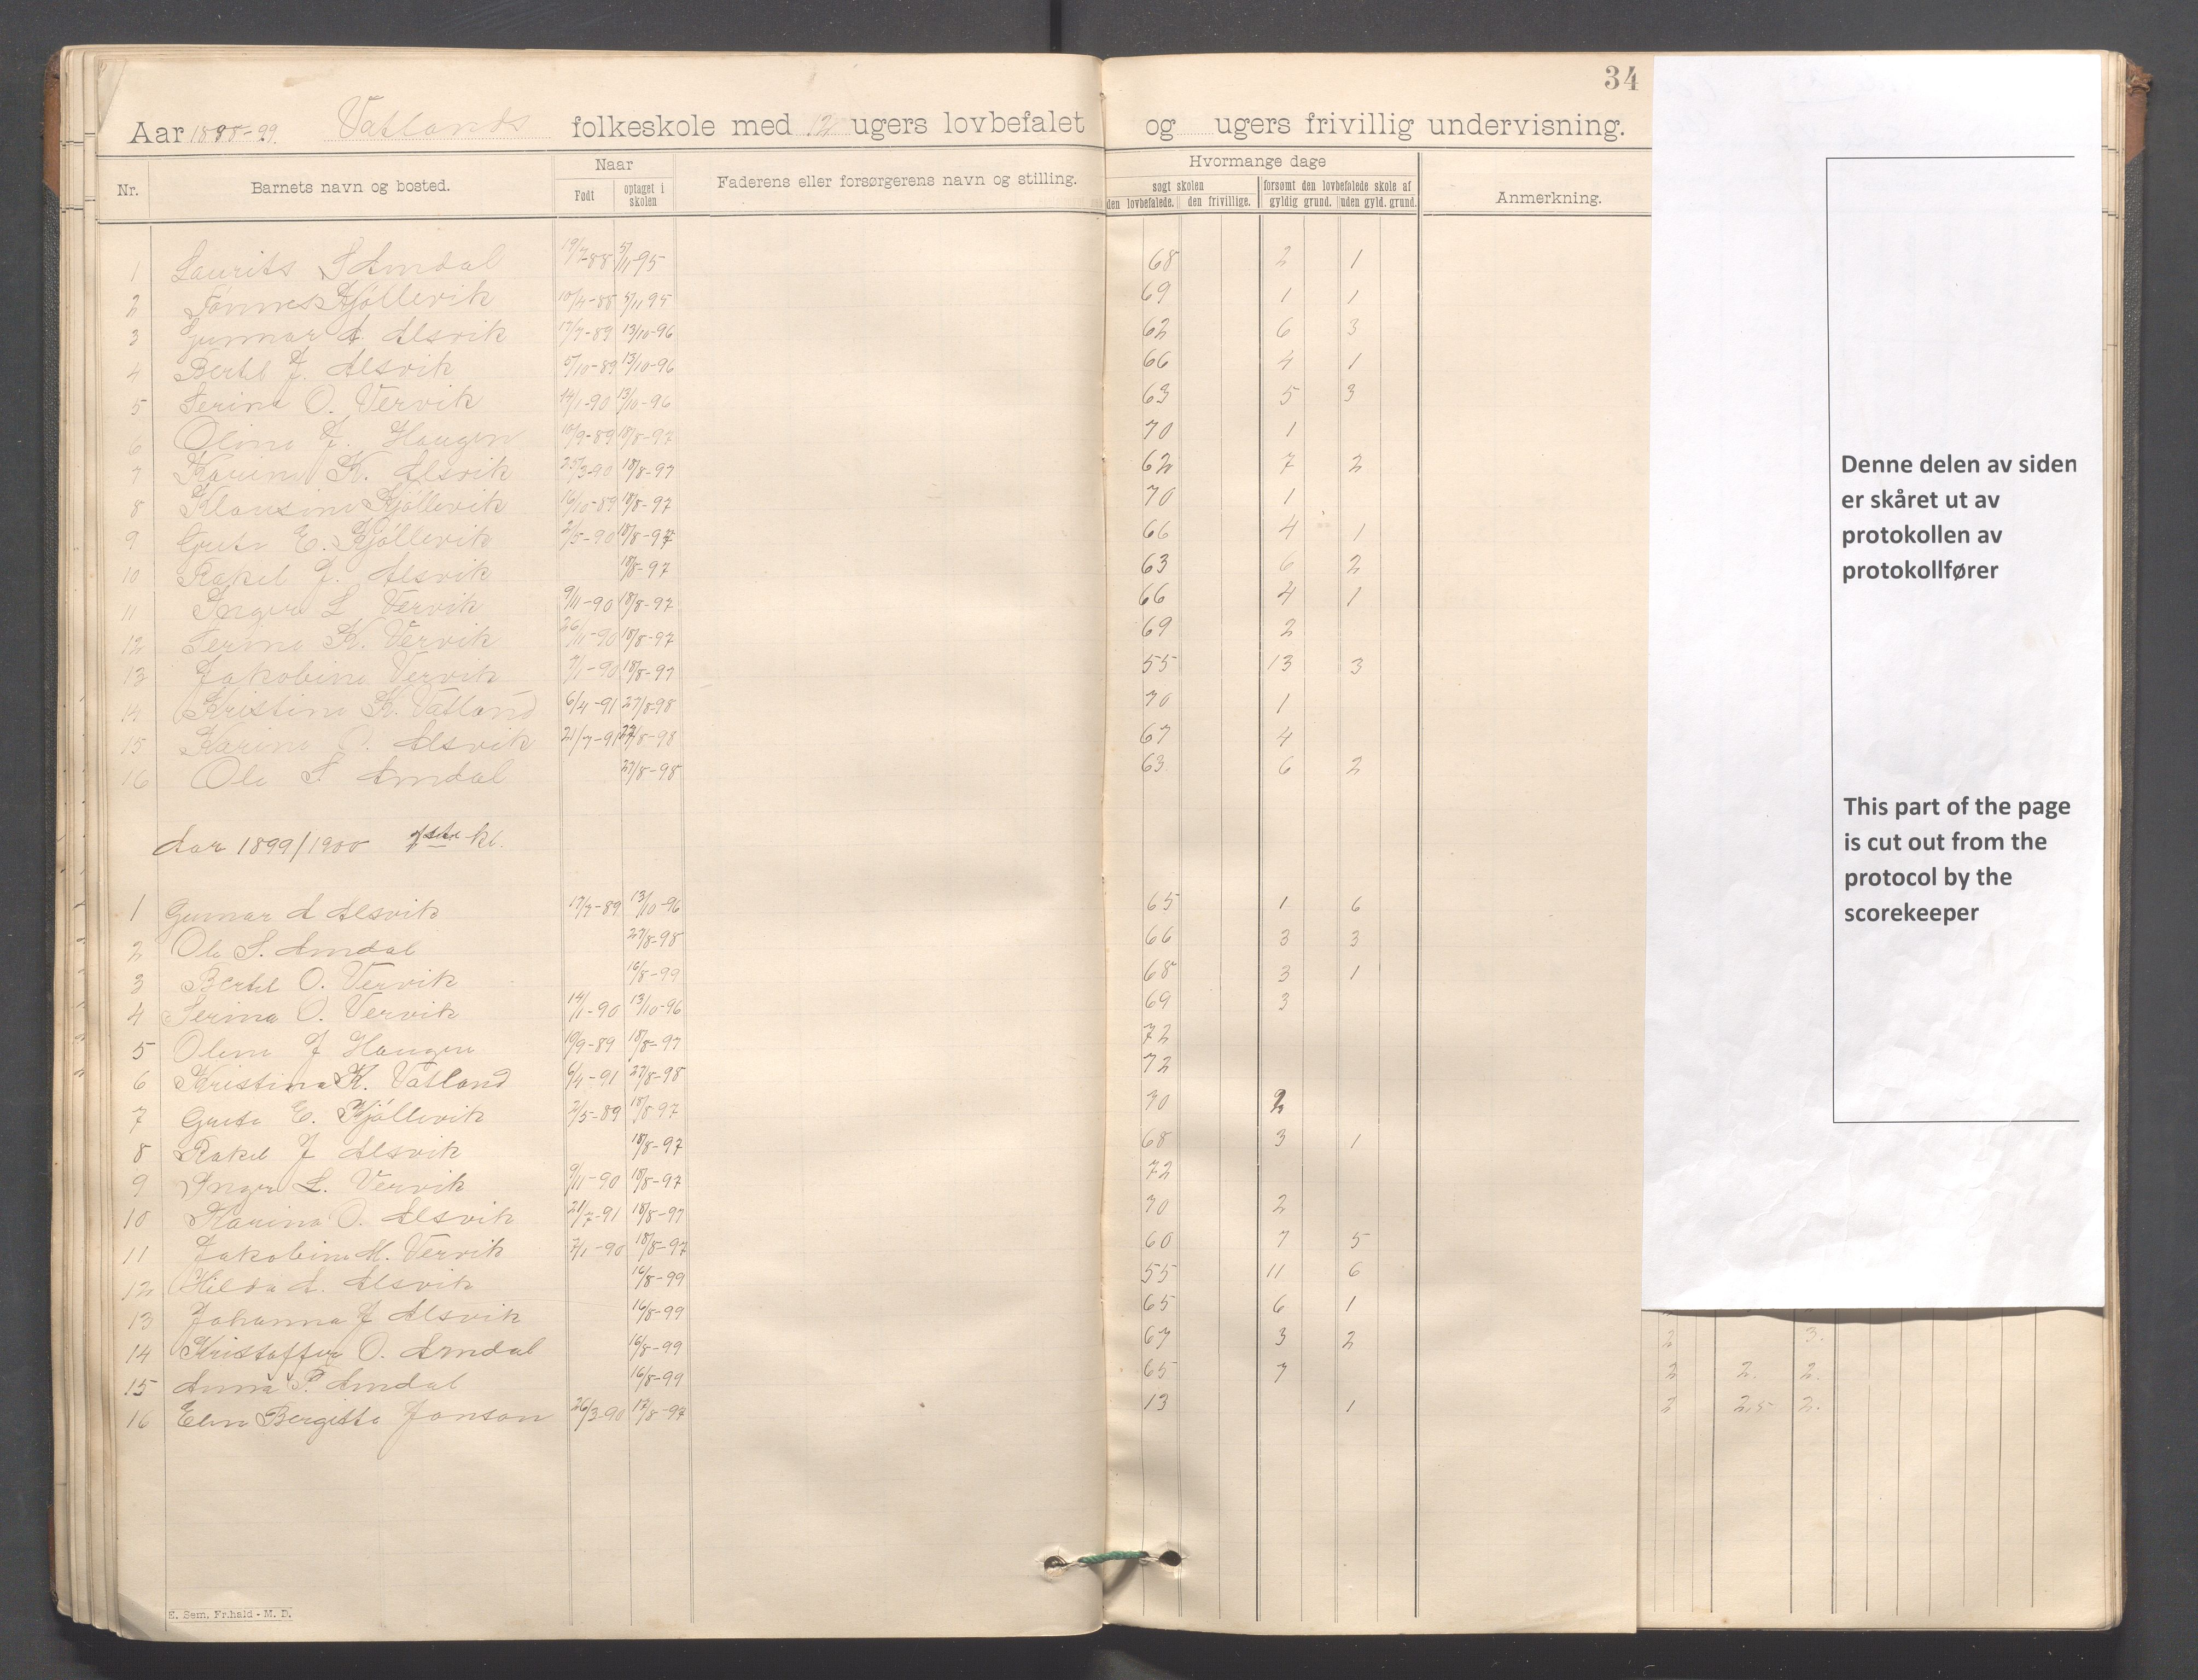 34
Aar 1898-99. Vatlands folkeskole med 12 ugers lovbefalet og ugers frivillig undervisning.
Nr. Barnets navn og bosted. Naar Født optaget i skolen Faderens eller forsørgerens navn og stilling. Hvormange dage søgt skolen den lovbefalede. den frivillige. forsømt den lovbefalede skole af gyldig grund. uden gyld. grund. Anmerkning.
1 Laurits S Amdal 19/7-88 5/11-95 68 2 1
2 Tønnes Kjøllevik 10/4-88 5/11 95 69 1 1
3 Gunnar A. Alsvik 17/7-89 13/10-96 62 6 3
4 Bertel J. Alsvik 5/10-89 13/10-96 66 4 1
5 Serine O. Vervik 14/1-90 13/10-96 63 5 3
6 Oline J. Haugen 10/9-89 18/8-97 70 1
7 Karine K. Alsvik 25/3-90 18/8-97 62 7 2
8 Klausine Kjøllevik 16/10-89 18/8-97 70 1
9 Greta E. Kjøllevik 2/5-90 18/8-97 66 4 1
10 Rakel J. Alsvik 18/8-97 63 6 2
11 Inger L Vervik 9/11-90 18/8-97 66 4 1
12 Serina K. Vervik 26/11-90 18/8-97 69 2
13 Jakobine Vervik 7/1-90 18/8-97 55 13 3
14 Kristine K. Vatland 6/4-91 27/8-98 70 1
15 Karina O. Alsvik 21/7-91 27/8-98 67 4
16 Ole S. Amdal 27/8-98 63 6 2
Aar 1899/1900 1ste kl.
1 Gunnar A Alsvik 17/7-89 13/10-96 65 1 6
2 Ole S. Amdal 27/8-98 66 3 3
3 Bertel O. Vervik 16/8-99 68 3 1
4 Serina O. Vervik 14/1-90 13/10-96 69 3
5 Oline J Haugen 10/9-89 18/8-97 72
6 Kristina K. Vatland 6/4-91 27/8-98 72
7 Greta E. Kjøllevik 2/5-89 18/8 97 70 2
8 Rakel J Alsvik 18/8-97 68 3 1
9 Inger L. Vervik 9/11-90 18/8-97 72
10 Karina O. Alsvik 21/7-91 18/8-97 70 2
11 Jakobine M. Vervik 7/1-90 18/8-97 60 7 5
12 Hilda A. Alsvik 16/8-99 55 11 6
13 Johanna J Alsvik 16/8-99 65 6 1
14 Kristoffer O. Amdal 16/8-99 67 3 2 2 3.
15 Anna P. Amdal 16/8-99 65 7 2 2. 2.
16 Elen Bergitte Jonson 26/3-90 17/8-97 13 1 2 2,5 2.
E. Sem, Fr.hald - M. D.
Denne delen av siden
er skåret ut av
protokollen av
protokollfører
This part of the page
is cut out from the
protocol by the
scorekeeper